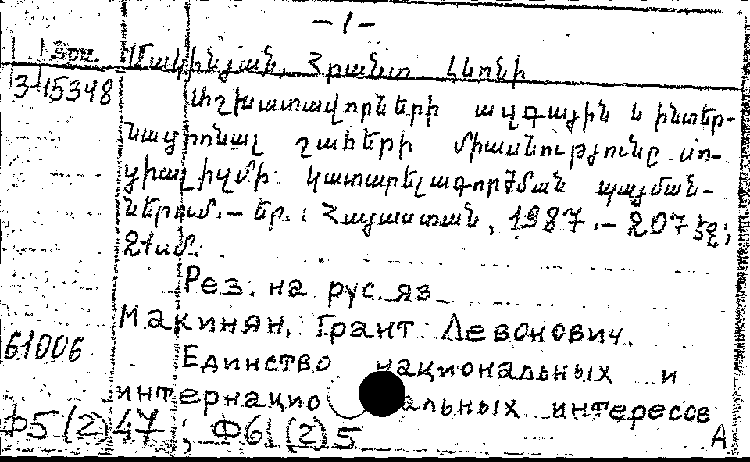 -1-
Մակինյան, Հրանտ Լևոնի
3-15348 Աշխատավորների ազգային և ինտեր-
նացիոնալ շահերի միասնությունը սո-
ցիալիզմի կատարելագործման պայման-
ներում.- Եր.: Հայաստան, 1987.- 207 էջ;
21սմ.
Рез. на рус.яз.
Макинян, Грант Левонович.
61006 Единство национальных и
интернацио альных интересов
Ф5(2)47; Ф61(2)5 А